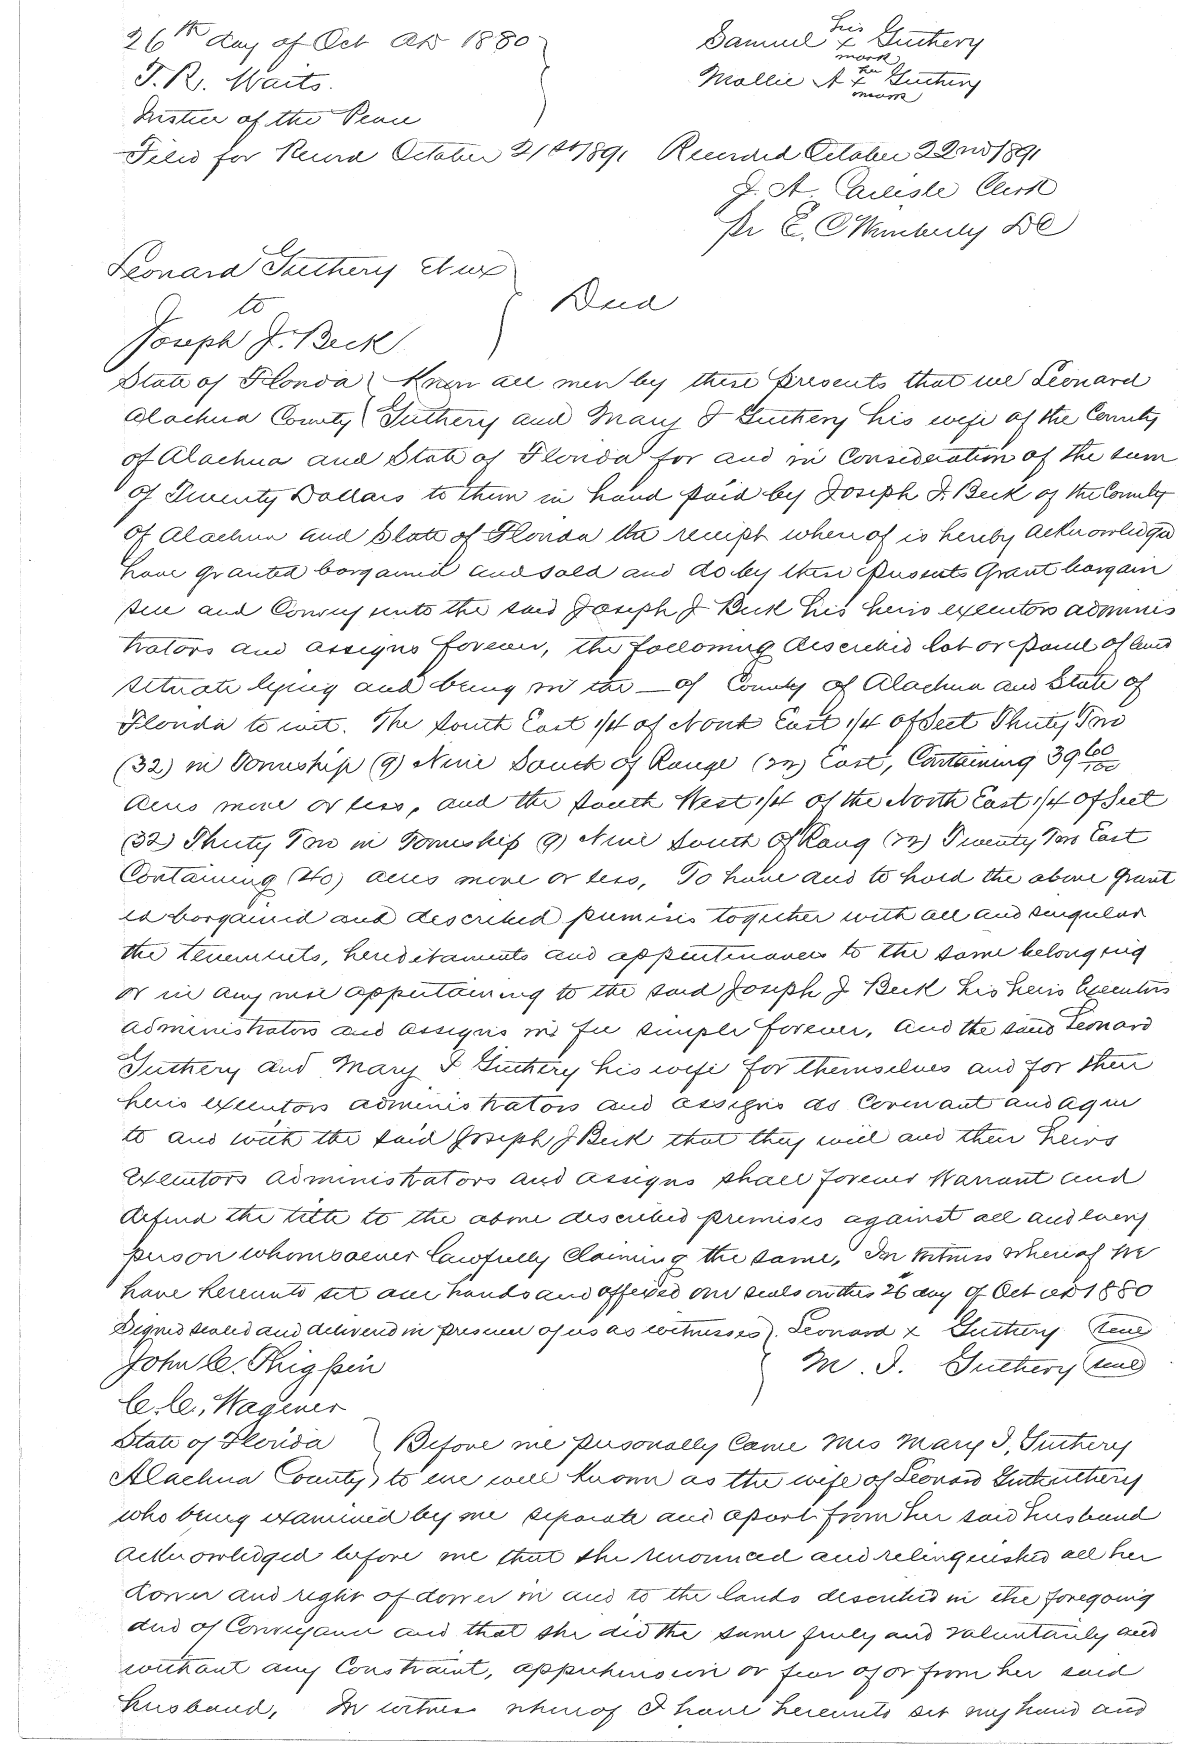 26th day of Oct AD 1880
Samuel his x mark Guthery
T. R. Waits.
Mollie A her x mark Guthery
Justice of the Peace
Filed for Record October 21st 1891 Recorded October 22nd 1891
J. A. Carlisle Clerk
Pr E. C Wimberly DC
Leonard Guthery et ux
to
Deed
Joseph J. Beck
State of Florida Know all men by these presents that we Leonard
Alachua County Guthery and Mary I Guthery his wife of the County
of Alachua and State of Florida for and in Consideration of the sum
of Twenty Dollars to them in hand paid by Joseph J. Beck of the County
of Alachua and State of Florida the receipt where of is hereby acknowledged
have granted bargained and sold and do by these presents Grant bargain
sell and Convey unto the said Joseph J Beck his heirs executors adminis
trators and assigns forever, the following described lot or parcel of land
situate lying and being in the — of County of Alachua and State of
Florida to wit. The South East 1/4 of North East 1/4 of Sect Thirty Two
(32) in Township (9) Nine South of Range (22) East, Containing 39 60/100
acres more or less, and the South West 1/4 of the North East 1/4 of Sect
(32) Thirty Two in Township (9) Nine South of Rang (22) Twenty Two East
Containing (40) acres more or less, To have and to hold the above grant
ed bargained and described premises together with all and singular
the tenements, hereditaments and appurtenances to the same belonging
or in any wise appertaining to the said Joseph J Beck his heirs Executors
administrators and assigns in fee simple forever. And the said Leonard
Guthery and Mary I Guthery his wife for themselves and for their
heirs executors administrators and assigns do Covenant and agree
to and with the said Joseph J Beck that they will and their heirs
executors administrators and assigns shall forever Warrant and
defend the title to the above described premises against all and every
person whomsoever lawfully Claiming the same, In witness whereof we
have hereunto set our hands and affixed our seals on this 26 day of Oct AD 1880
Signed sealed and delivered in presence of us as witnesses Leonard x Guthery Seal
John C. Thigpin
M. I. Guthery Seal
C. C. Wagener
State of Florida Before me personally Came Mrs Mary I, Guthery
Alachua County to me well known as the wife of Leonard Gutheuthery
who being examined by me separate and apart from her said husband
acknowledged before me that she renounced and relinquished all her
dower and right of dower in and to the lands described in the foregoing
deed of Conveyance and that she did the same freely and voluntarily and
without any Constraint, apprehension or fear of or from her said
husband. In witness whereof I have hereunto set my hand and